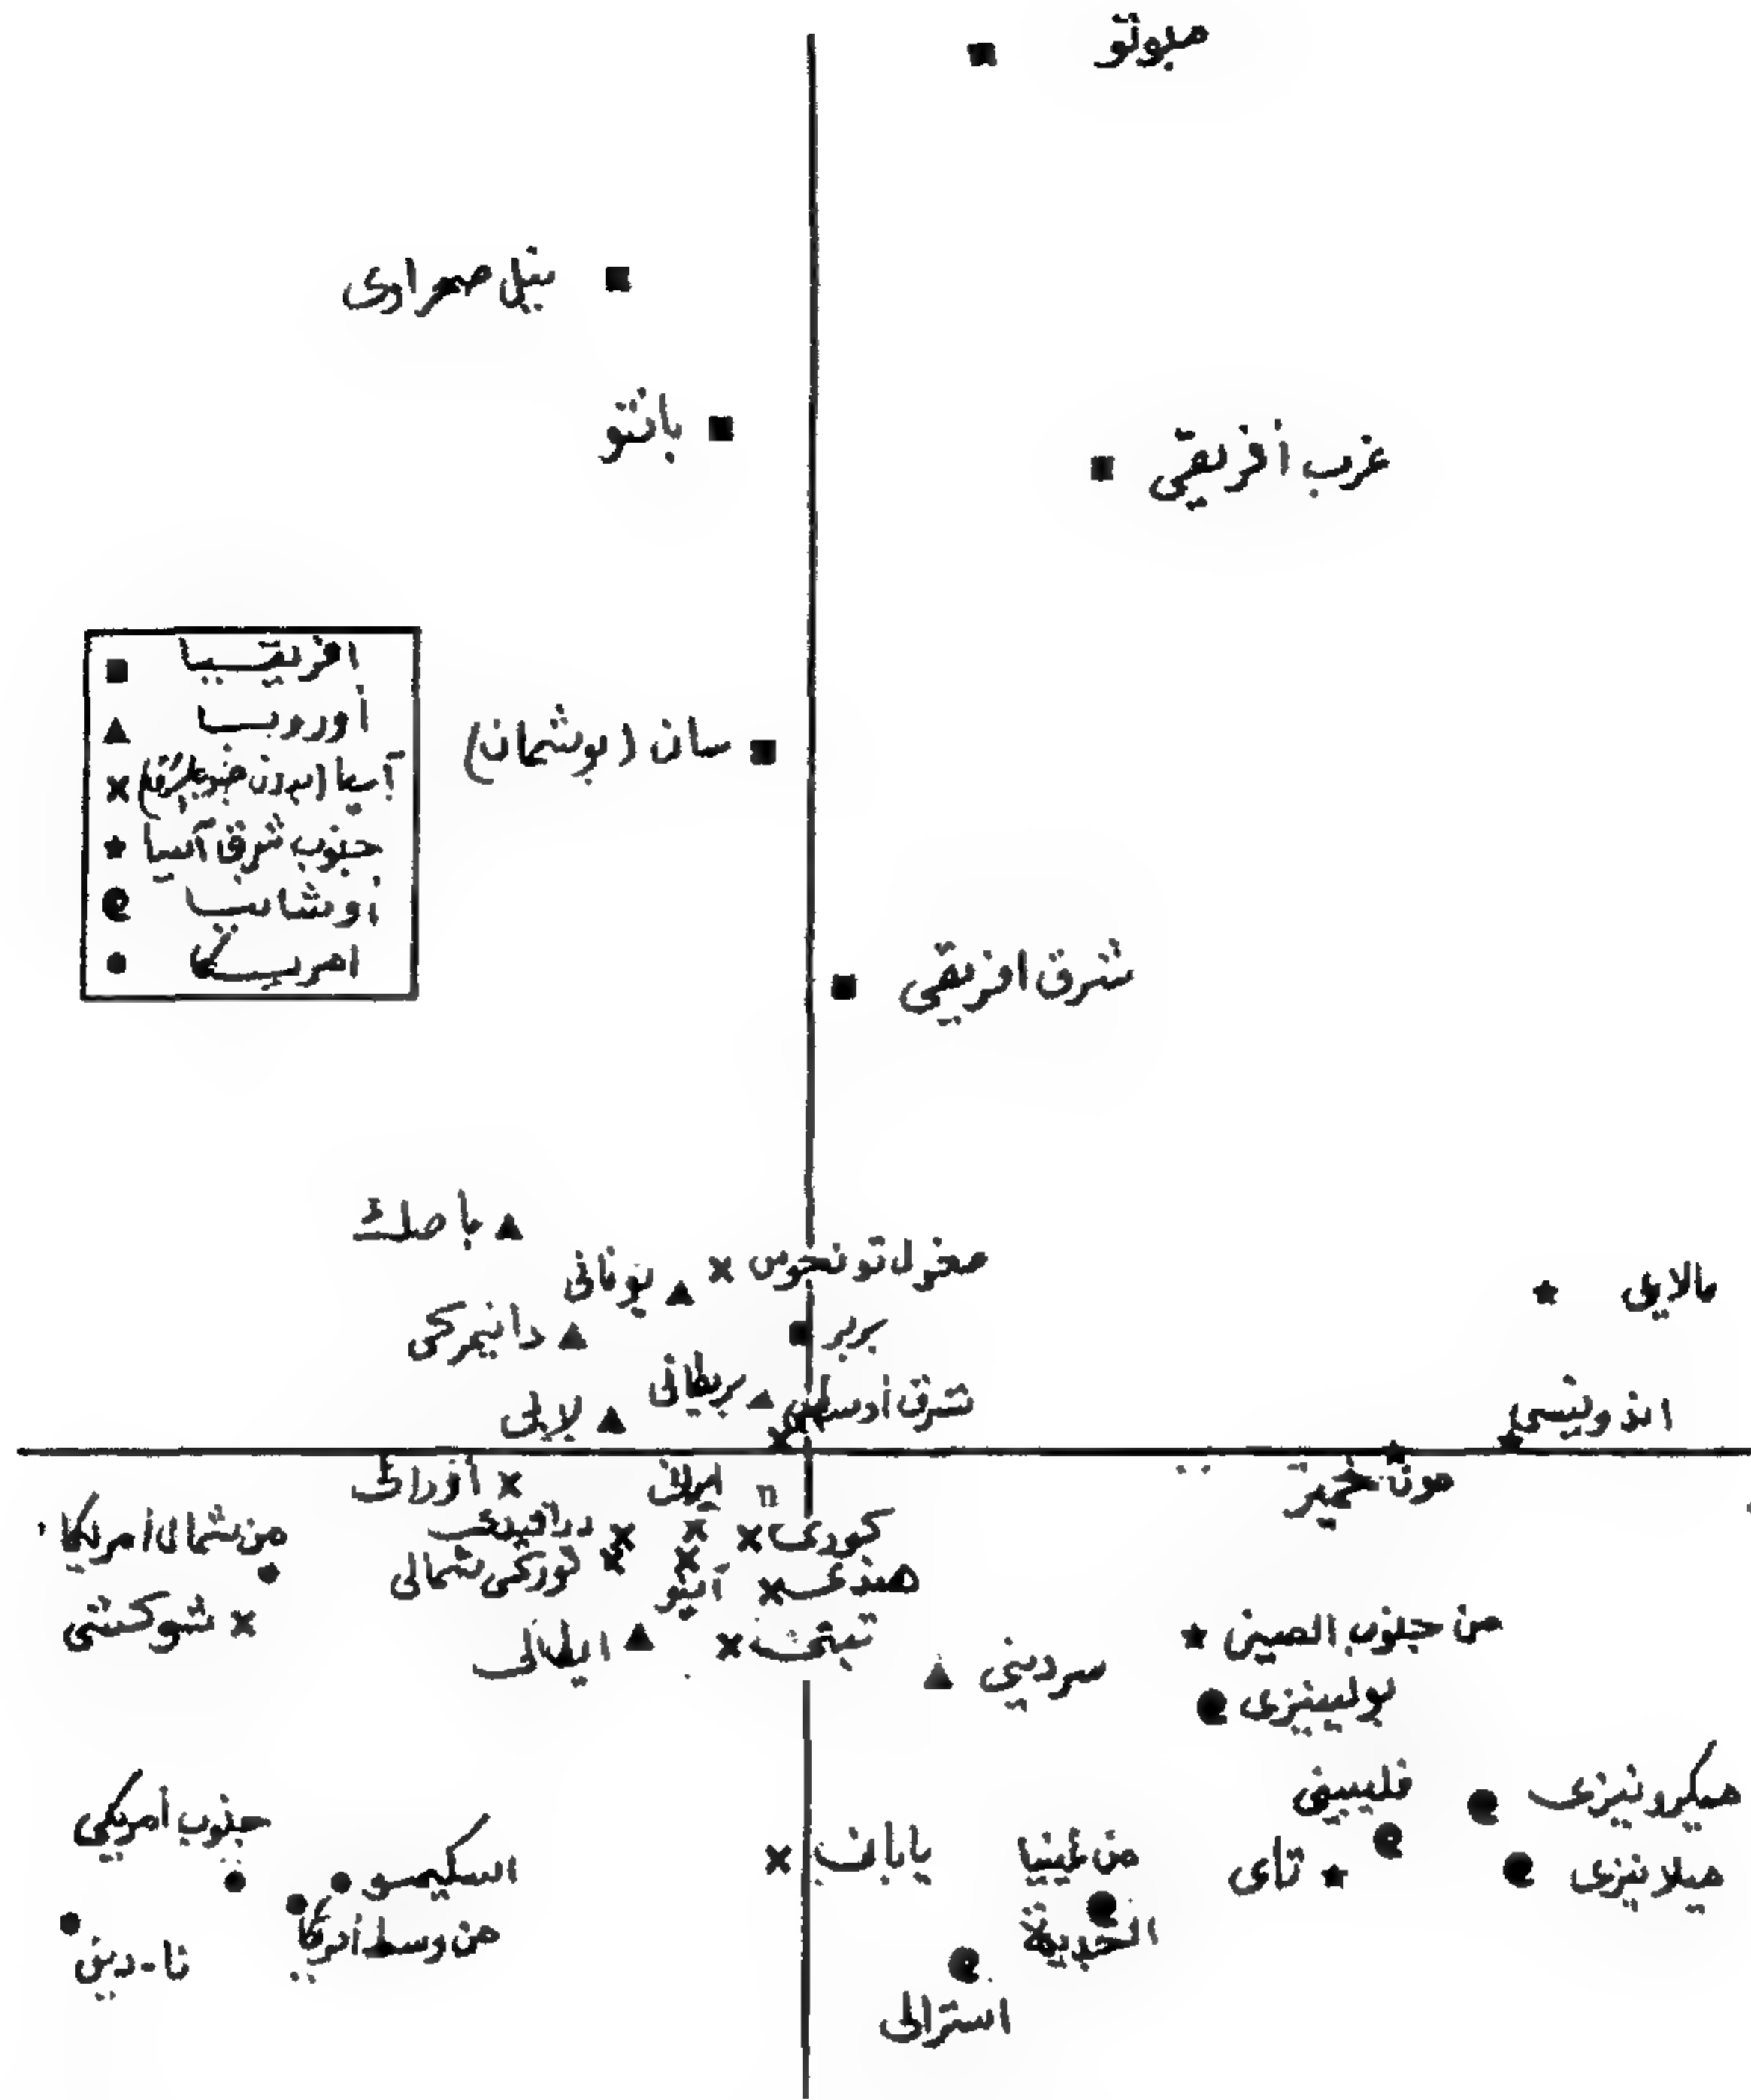 مبوتو
نيلى صحراوى
بانتو
غرب أفريقى
افريقيا
أوروبا
آسيا (بدون جنوب شرق)
جنوب شرق آسيا
أوشانيا
امريكا
سان (بوشمان)
شرق افريقى
باصك
مغول تونجوس
يونانى
مالايى
دانيمركى
بربر
بريطانى
شرق أوسطى
لابى
اندونيسى
أورالى
ايرانى
n
مون خمير
من شمال أمريكا
درافيدى
كورى
توركى شمالى
آينو
هندى
شوكتشى
ايطالى
تبتى
سردينى
من جنوب الصين
بولينيزى
جنوب أمريكى
فلبينى
ميكرونيزى
اسكيمو
يابان
من غينيا
الجديدة
تاى
ميلانيزى
نا-دينى
من وسط أمريكا
استرالى